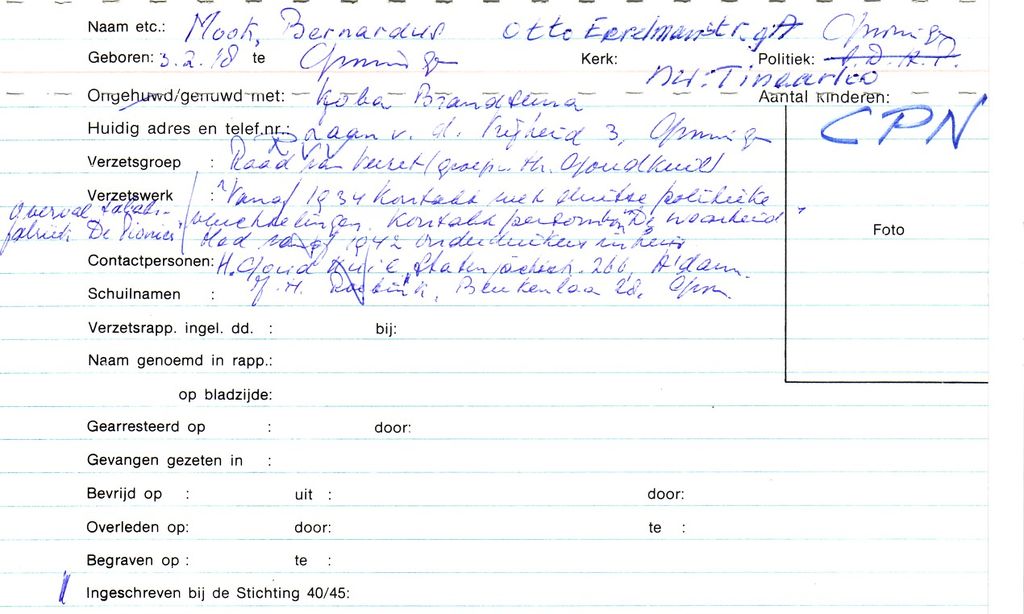 Naam etc.: Mook, Bernardus Otto Eerelmanstr. 9A Groningen
Geboren: 3.2.18 te Groningen Kerk: Politiek: A.D.A.P.
Nu: Tinaarloo
Ongehuwd/gehuwd met: Koba Brandsema Aantal kinderen:
CPN
Huidig adres en telef.nr.: Laan v. d. Vrijheid 3, Groningen
Verzetsgroep : Raad van Verzet/groep H. Goudkuil
Verzetswerk : "Vanaf 1934 kontakt met duitse politieke
Overval
vluchtelingen. Kontaktpersoon "De Waarheid"
fabriek De Pionier
Had vanaf 1942 onderduikers in huis
Foto
Contactpersonen: H. Goudkuil, 266, A'dam.
Schuilnamen : J. H. Beukenlaan 28, Gron.
Verzetsrapp. ingel. dd. : bij:
Naam genoemd in rapp.:
op bladzijde:
Gearresteerd op : door:
Gevangen gezeten in :
Bevrijd op : uit : door:
Overleden op: door: te :
Begraven op : te :
Ingeschreven bij de Stichting 40/45: